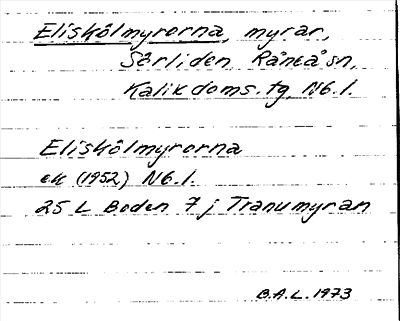 Eliskölmyrorna, myrar,
Sörliden, Råneå sn,
Kalik doms. tg, N6.1.
Eliskölmyrorna
ek (1952) N6.1.
25 L Boden 7 j Tranumyran
B.A.L. 1973